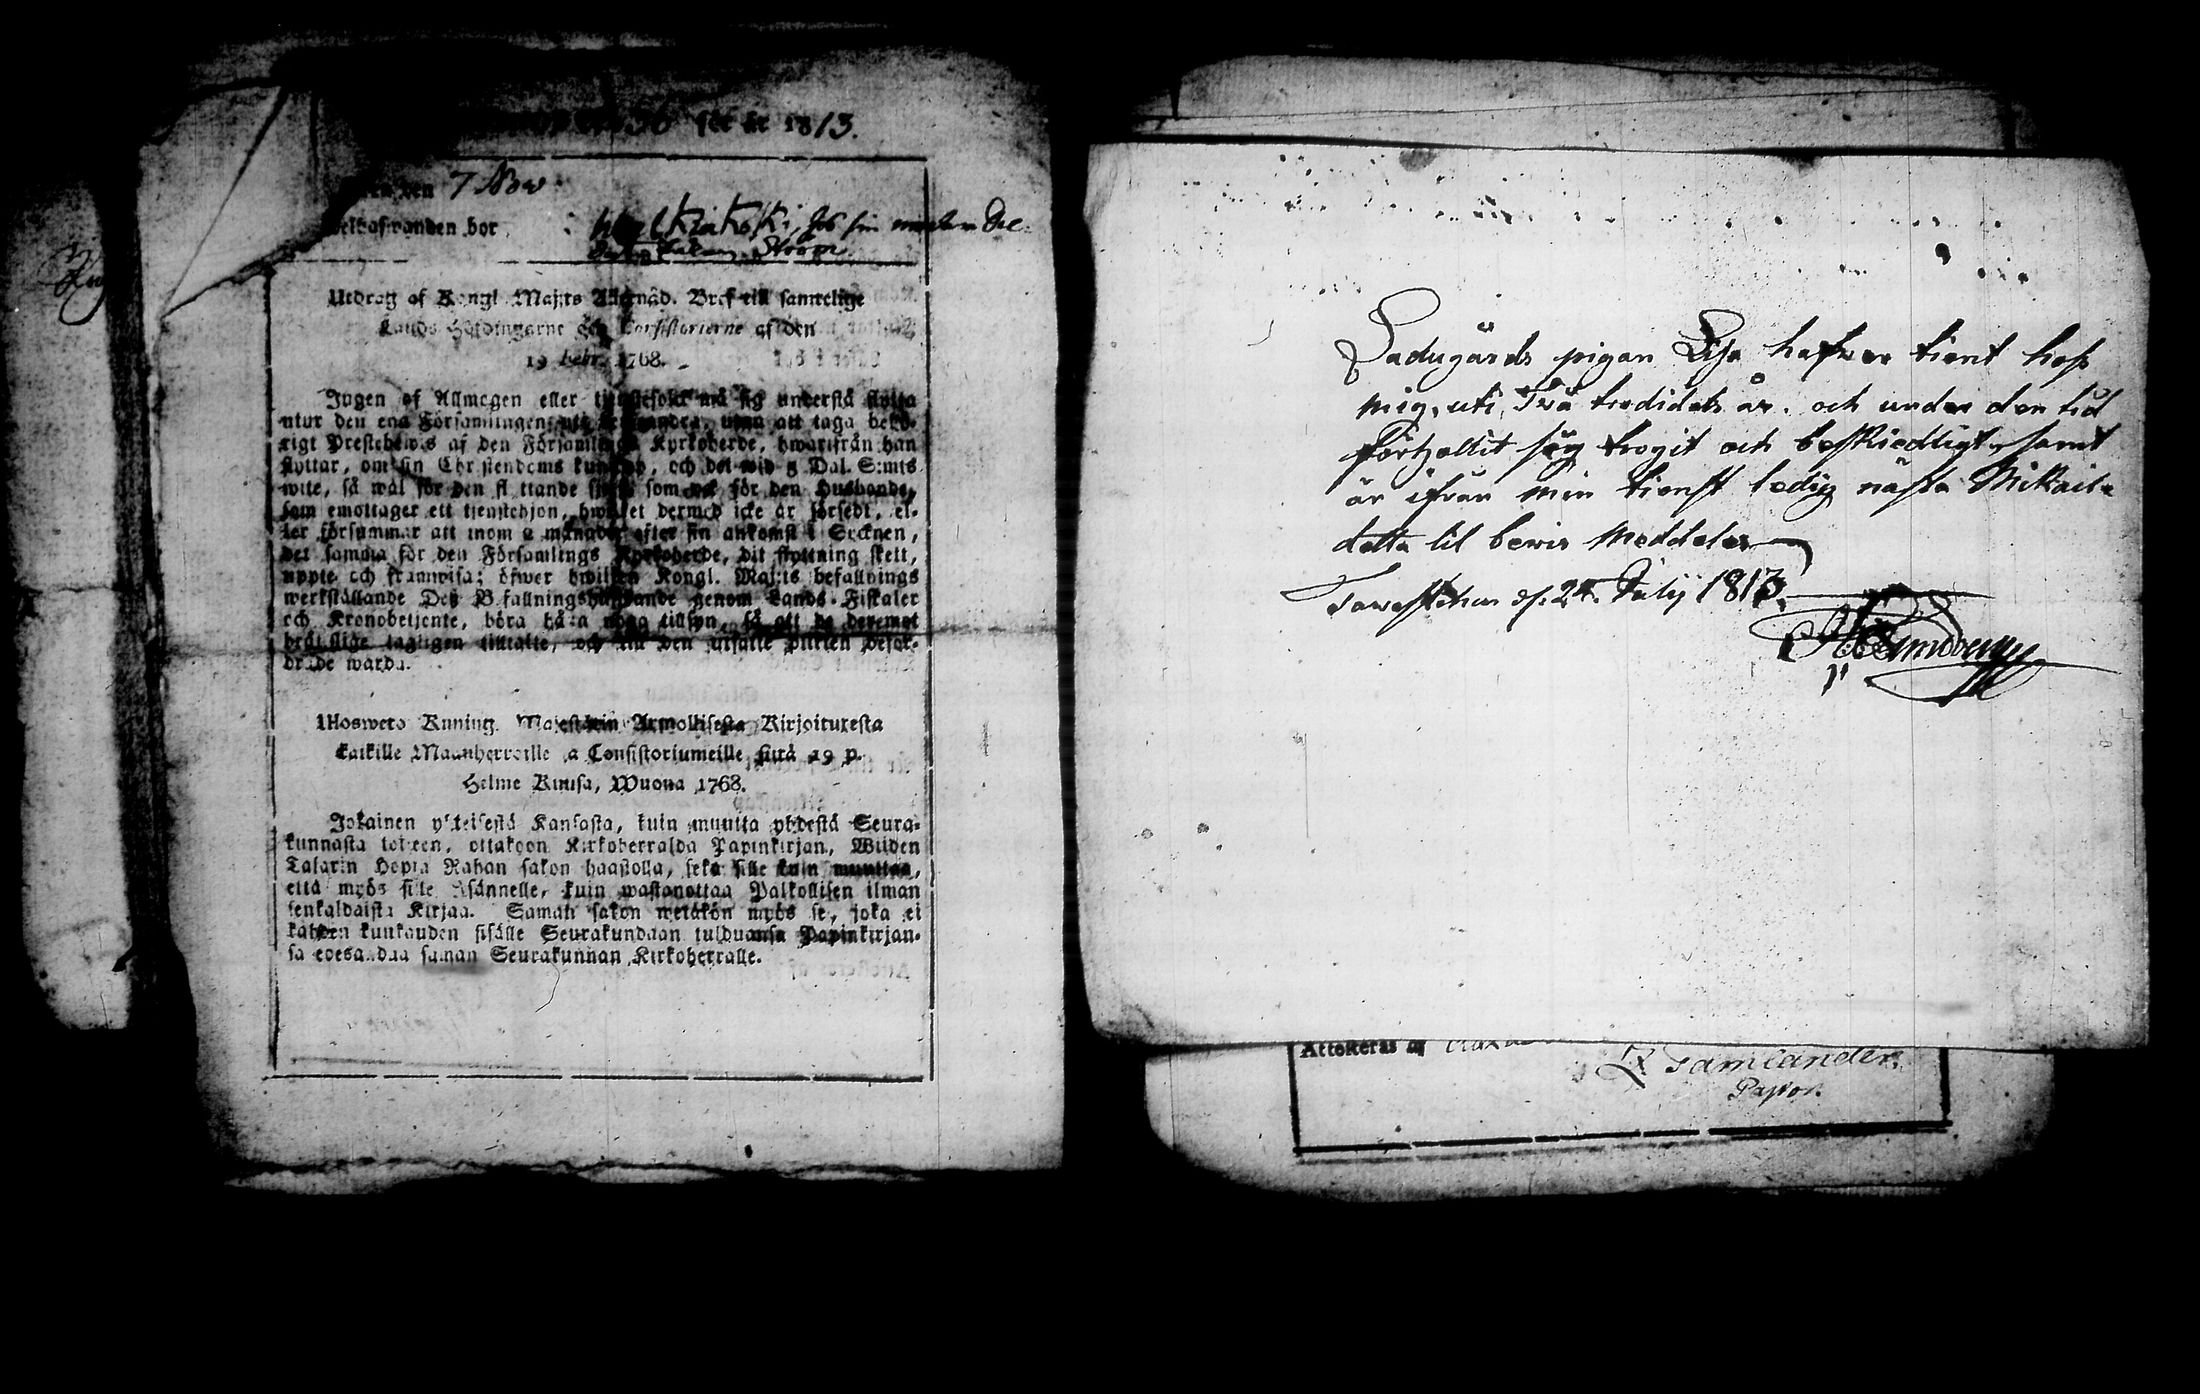 för år 1813.
den 7 Nov
bor Walkiakoski, hos sin
Ström.
Utdrag af Kongl. Maj:ts Allernåd. Bref till samtelige
Lands-Höfdingarne och Consistorierne af den
19 Febr. 1768.
Ingen af Allmogen eller tjenstefolk må sig understå flytta
utur den ena Församlingen uti den andra, utan att taga behö-
rigt Prestebewis af den Församlings Kyrkoherde, hwarifrån han
flyttar, om sin Christendoms kunskap, och det wid 5 Dal. S:mts
wite, så wäl för den flyttande sjelf som ock för den Husbonde,
som emottager ett tjenstehjon, hwilket dermed icke är försedt, el-
ler försummar att inom 2 månader efter sin ankomst i Socknen,
det samma för den Församlings Kyrkoherde, dit flyttning skett,
uppte och framwisa; öfwer hwilken Kongl. Maj:ts befallnings
werkställande Deß Befallningshafwande genom Lands-Fiskaler
och Kronobetjente, böra hafwa noga tillsyn, så att de deremot
brottslige lagligen tilltalte, och till den utsatte plikten befor-
drade warda.
Ulosweto Kuning. Majestetin Armollisesta Kirjoituxesta
kaikille Maanherroille ja Consistoriumeille siitä 19 p.
Helme Kuusa, Wuona 1768.
Jokainen yhteisestä Kansasta, kuin muutta yhdestä Seura-
kunnasta toiseen, ottakoon Kirkoherralda Papinkirjan, Wiiden
Talarin Hopia Rahan sakon haastolla, sekä sille kuin muuttaa,
että myös sille Isännelle, kuin wastanottaa Palkollisen ilman
senkaldaista Kirjaa. Saman sakon wetäkön myös se, joka ei
kahden kuukauden sisälle Seurakundaan tulduansa Papinkirjan-
sa edesanda saman Seurakunnan Kirkoherralle.
Ladugårds pigan Lisa hafwer tient hoß
mig, uti Två tredidels år. och under den tid
förhållit sig trogit och beskiedligt, samt
är ifrån min tienst ledig nästa Mikaili
detta til bewis meddelas
Tawastehus d. 24. Julij 1813.
Attesteras af
Tamlander
Pastor.